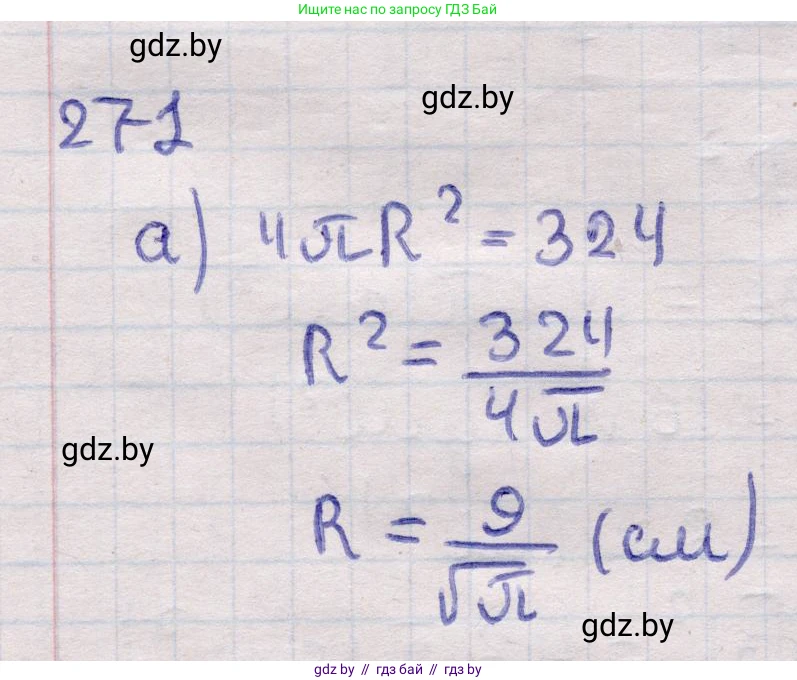 Ищите нас по запросу ГДЗ Бай
gdz.by
gdz.by
271
а) 4πR² = 324
R² = 324/4π
gdz.by
R = 9/√π (см)
gdz.by
gdz by // гдз бай // гдз by